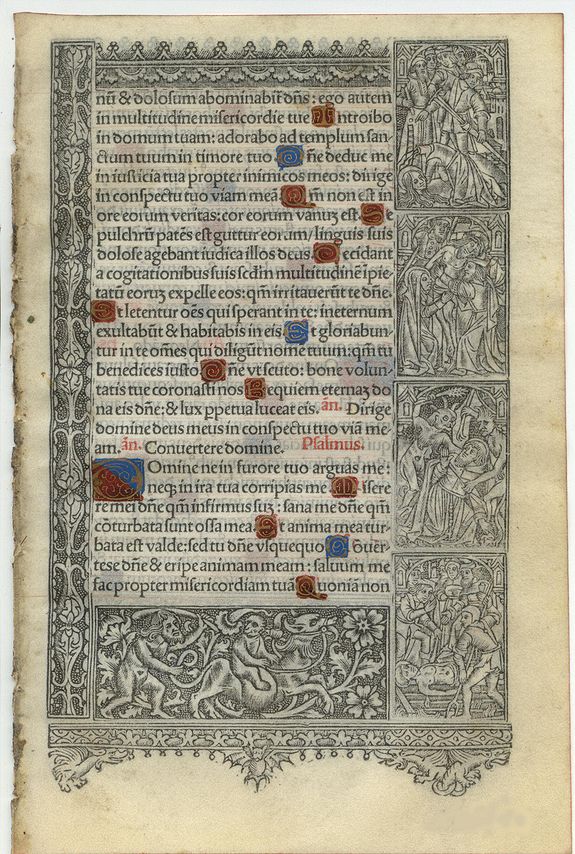 nũ & dolosum abominabit̃ dñs: ego autem
in multitudine misericordie tue Introibo
in domum tuam: adorabo ad templum san-
ctum tuum in timore tuo. Dñe deduc me
in iusticia tua propter inimicos meos: dirige
in conspectu tuo viam meã. Qm̃ non est in
ore eorum veritas: cor eorum vanuȝ est. Se
pulchrũ patẽs est guttur eorum/ linguis suis
dolose agebant iudica illos deus. Decidant
a cogitationibus suis scd̃m multitudinẽ ipie
tatũ eoruȝ expelle eos: qm̃ irritauerũt te dñe.
Et letentur oẽs qui sperant in te: in eternum
exultabũt & habitabis in eis. Et gloriabun-
tur in te om̃es qui diligũt nomẽ tuum: qm̃ tu
benedices iusto. Dñe vt scuto: bone volun-
tatis tue coronasti nos. Requiem eternaȝ do
na eis dñe: & lux ꝑpetua luceat eis. añ. Dirige
domine deus meus in conspectu tuo viã me-
am. añ. Conuertere domine. Psalmus.
Domine ne in furore tuo arguas me:
neqȝ in ira tua corripias me. Misere
re mei dñe qm̃ infirmus suȝ: sana me dñe qm̃
cõturbata sunt ossa mea. Et anima mea tur-
bata est valde: sed tu dñe vsquequo Cõuer-
tere dñe & eripe animam meam: saluum me
fac propter misericordiam tuã. Quoniã non